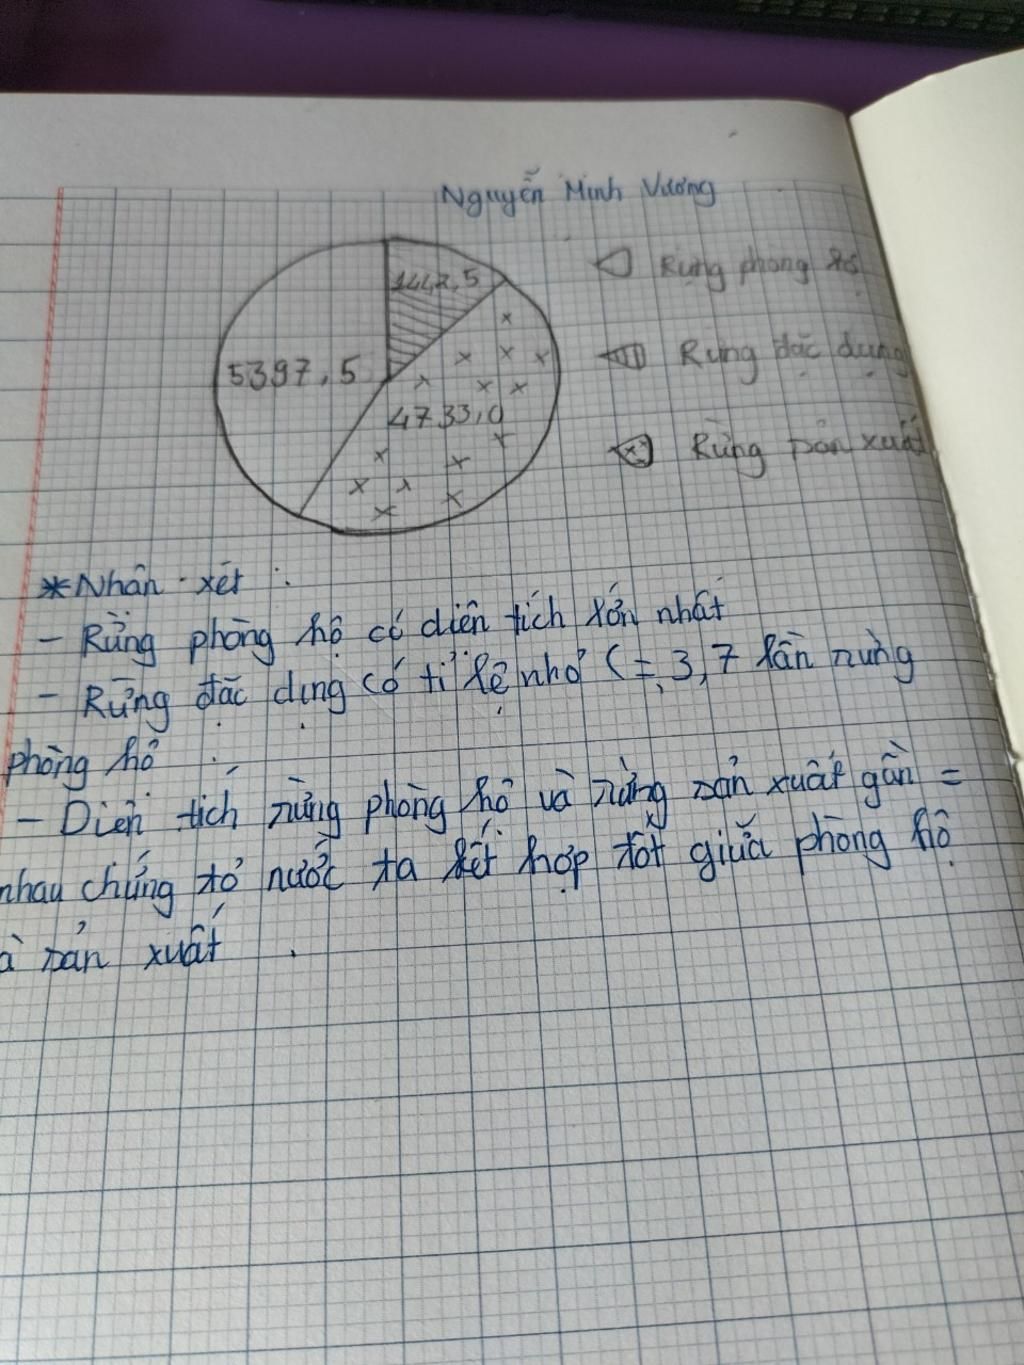 Nguyễn Minh Vương
1442,5
Rừng phòng hộ
5397,5
Rừng đặc dụng
4733,0
Rừng sản xuất
* Nhận xét :
- Rừng phòng hộ có diện tích lớn nhất
- Rừng đặc dụng có tỉ lệ nhỏ ( = 3,7 lần rừng
phòng hộ .
- Diện tích rừng phòng hộ và rừng sản xuất gần =
nhau chứng tỏ nước ta kết hợp tốt giữa phòng hộ
à sản xuất .